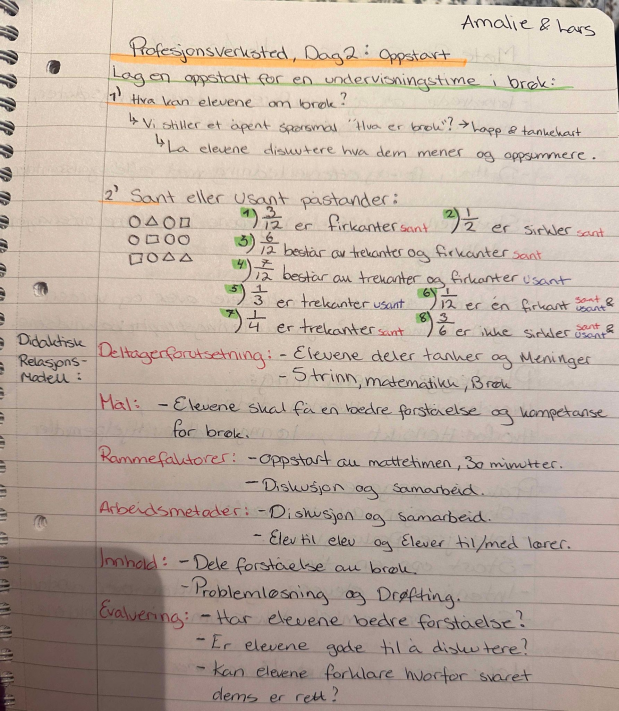 Amalie & Lars
Profesjonsverksted, Dag 2: Oppstart
Lag en oppstart for en undervisningstime i brøk:
1) Hva kan elevene om brøk?
↳ Vi stiller et åpent spørsmål "Hva er brøk"? → Lapp & tankekart
↳ La elevene diskutere hva dem mener og oppsummere.
2) Sant eller Usant påstander:
○△○□
○□○○
□○△△
1) 3/12 er firkanter sant 2) 1/2 er sirkler sant
3) 6/12 består av trekanter og firkanter sant
4) 7/12 består av trekanter og firkanter usant
5) 1/3 er trekanter usant 6) 1/12 er én firkant sant & usant
7) 1/4 er trekanter sant 8) 3/6 er ikke sirkler sant & usant
Didaktisk
Relasjons-
Modell:
Deltagerforutsetning: - Elevene deler tanker og Meninger
- 5 trinn, matematikk, Brøk
Mål: - Elevene skal få en bedre forståelse og kompetanse
for brøk.
Rammefaktorer: - Oppstart av mattetimen, 30 minutter.
- Diskusjon og samarbeid.
Arbeidsmetoder: - Diskusjon og samarbeid.
- Elev til elev og Elever til/med lærer.
Innhold: - Dele forståelse av brøk.
- Problemløsning og Drøfting.
Evaluering: - Har elevene bedre forståelse?
- Er elevene gode til å diskutere?
- Kan elevene forklare hvorfor svaret
dems er rett?